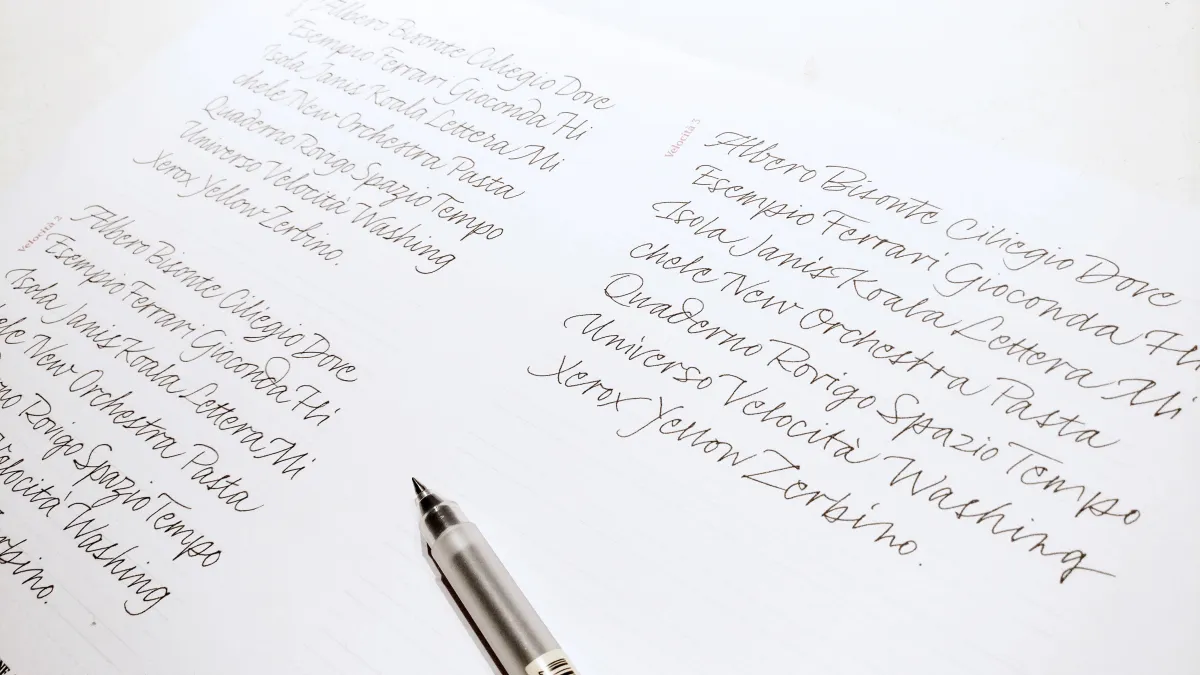 Albero Bisonte Ciliegio Dove
Esempio Ferrari Gioconda Hi
Isola Janis Koala Lettera Mi
chele New Orchestra Pasta
Quaderno Rovigo Spazio Tempo
Universo Velocità Washing
Xerox Yellow Zerbino.
Velocità 2
Albero Bisonte Ciliegio Dove
Esempio Ferrari Gioconda Hi
Isola Janis Koala Lettera Mi
New Orchestra Pasta
Rovigo Spazio Tempo
Velocità Washing
Velocità 3
Albero Bisonte Ciliegio Dove
Esempio Ferrari Gioconda Hi
Isola Janis Koala Lettera Mi
chele New Orchestra Pasta
Quaderno Rovigo Spazio Tempo
Universo Velocità Washing
Xerox Yellow Zerbino.